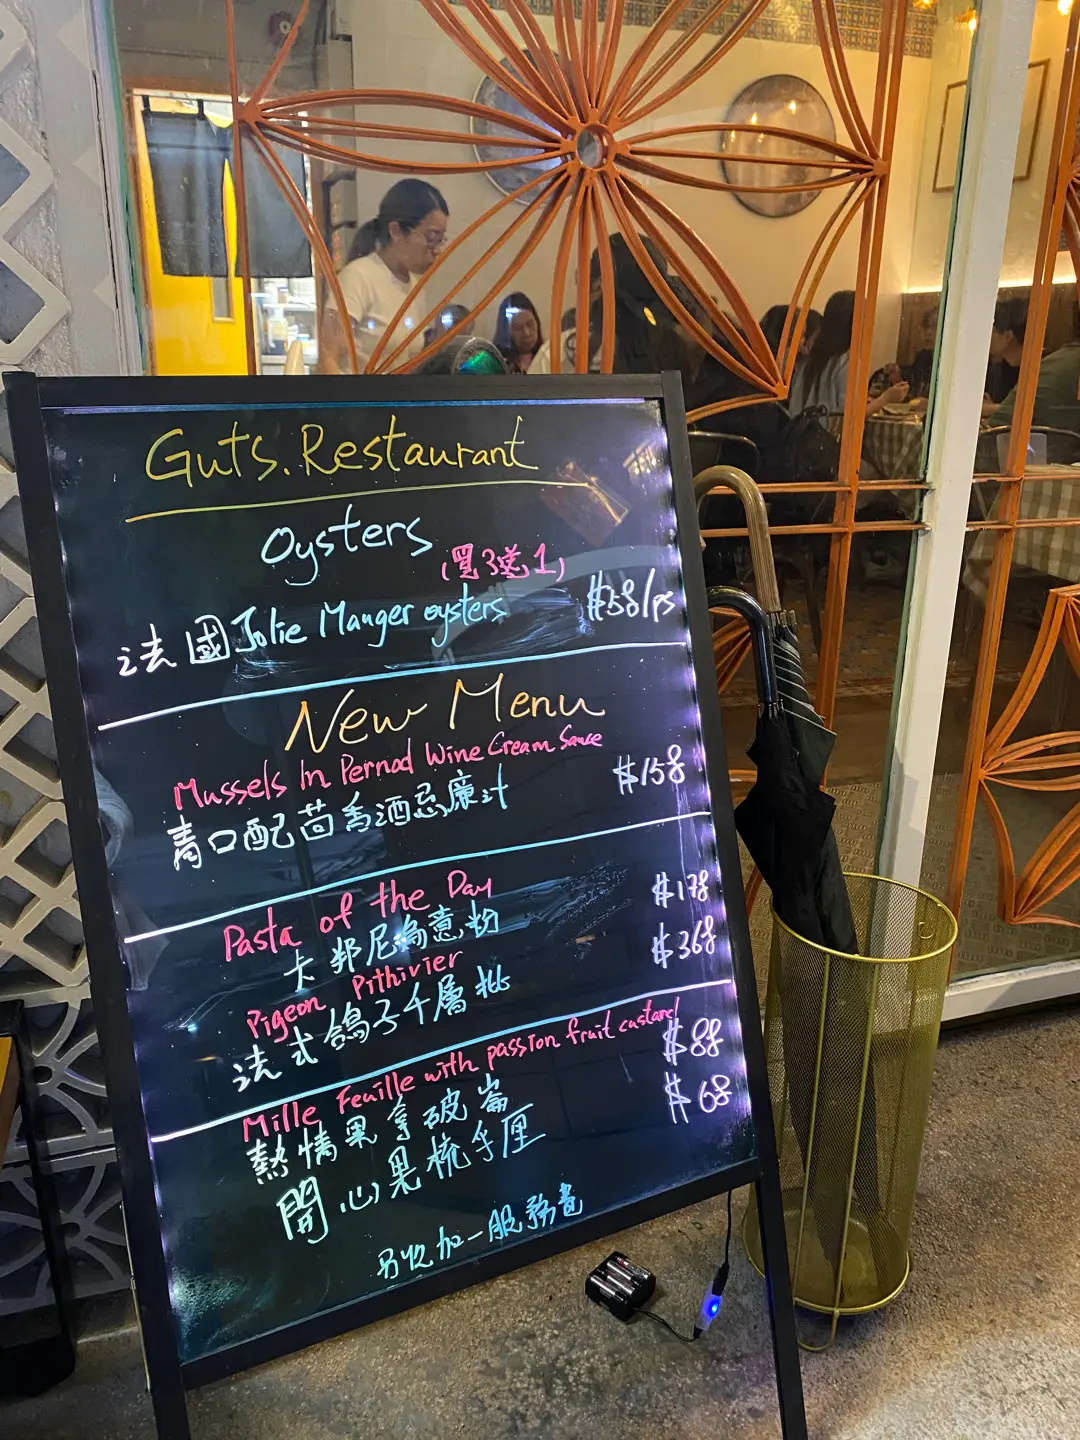 Guts. Restaurant
Oysters
(買3送1)
法國 Jolie Manger oysters $58/ps
New Menu
Mussels In Pernod Wine Cream Sauce
青口配茴香酒忌廉汁 $158
Pasta of the Day
卡邦尼烏意粉 $178
Pigeon Pithivier $368
法式鴿子千層批
Mille Feuille with passion fruit custard
熱情果拿破崙 $88
開心果梳乎厘 $68
另收加一服務費